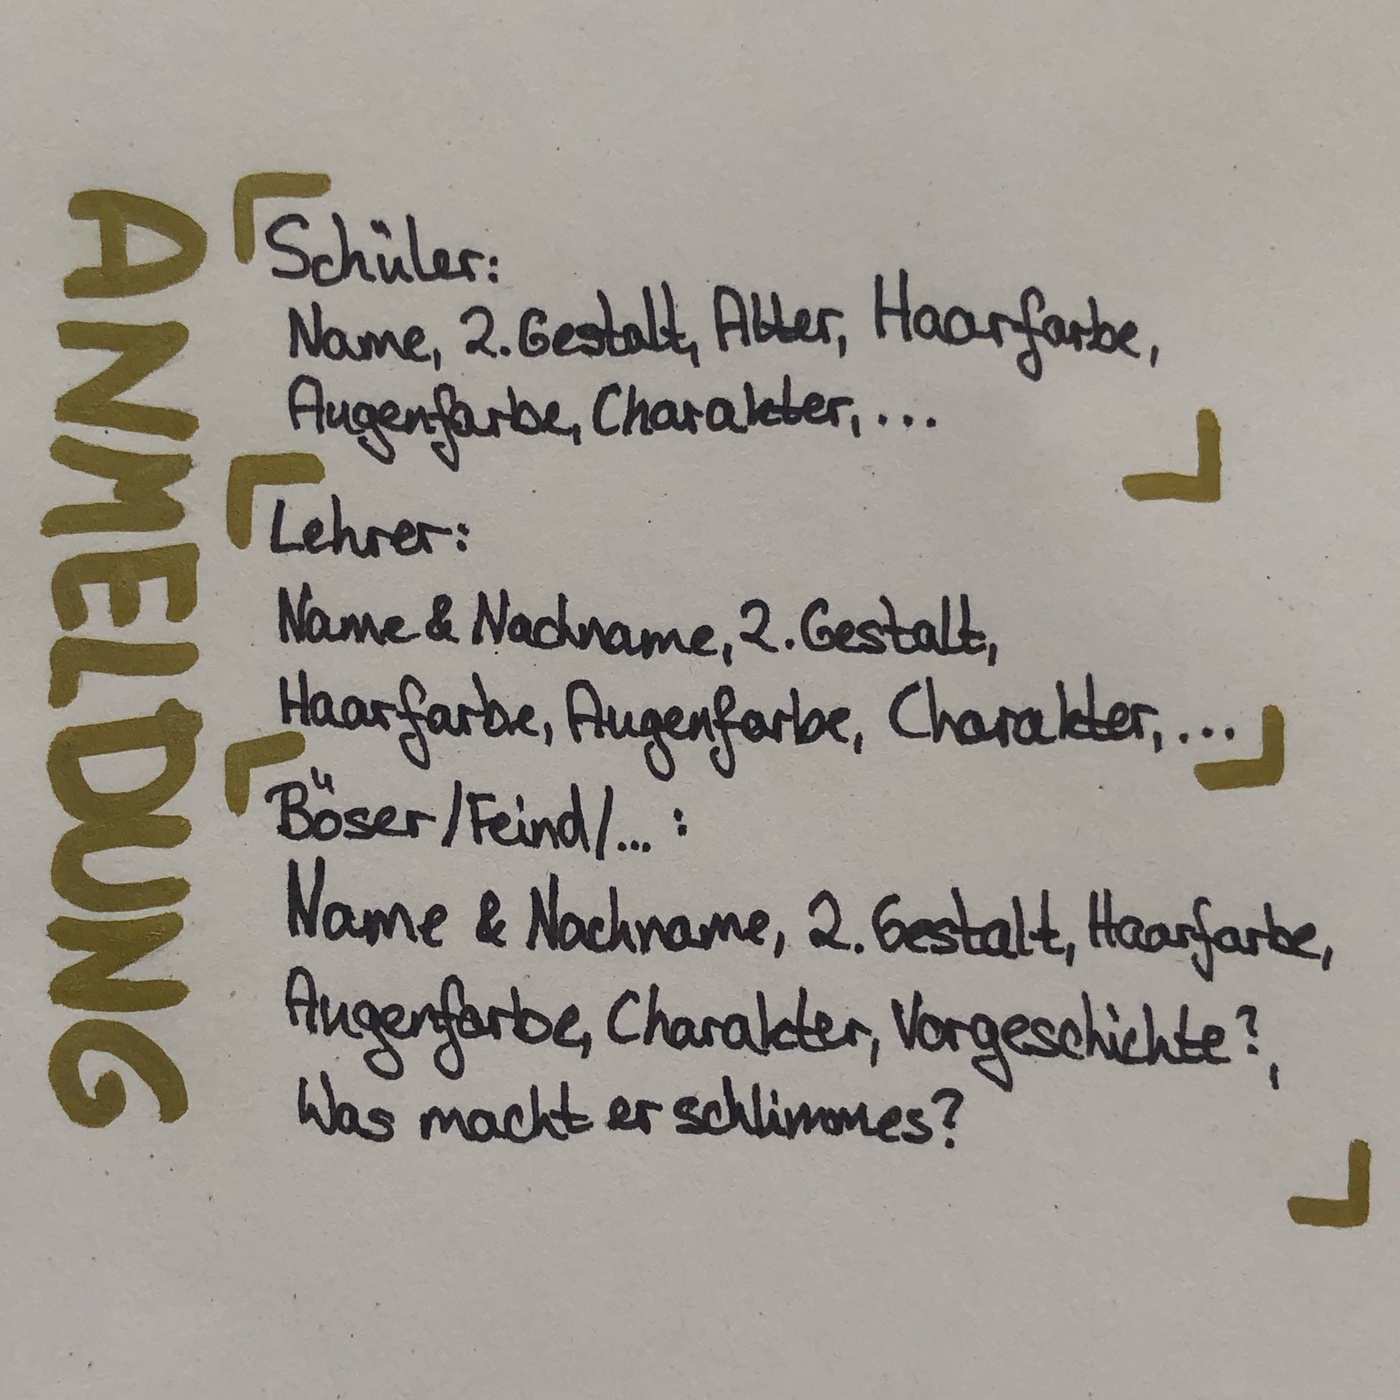 ANMELDUNG
Schüler:
Name, 2. Gestalt, Alter, Haarfarbe,
Augenfarbe, Charakter, ...
Lehrer:
Name & Nachname, 2. Gestalt,
Haarfarbe, Augenfarbe, Charakter, ...
Böser/Feind/... :
Name & Nachname, 2. Gestalt, Haarfarbe,
Augenfarbe, Charakter, Vorgeschichte?,
Was macht er schlimmes?